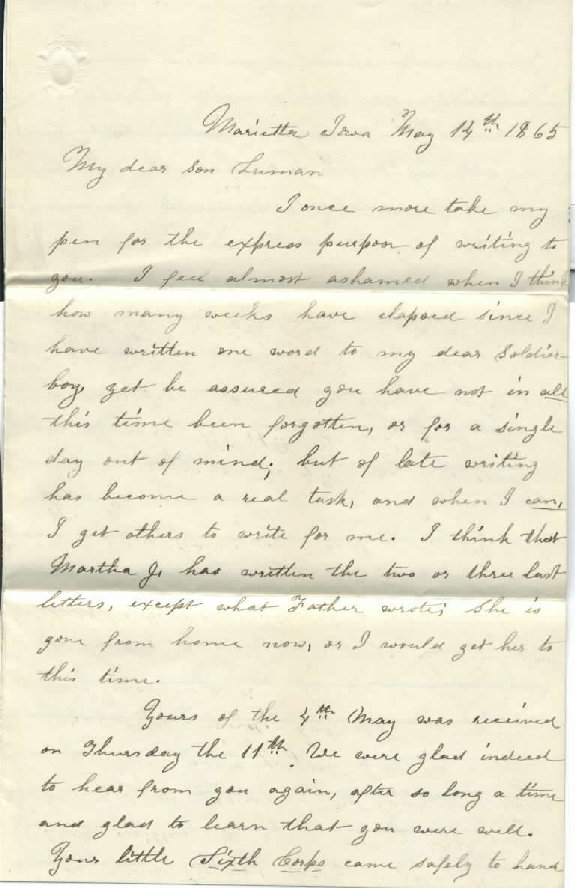 Marietta Iowa May 14th 1865
My dear son Luman
I once more take my
pen for the express purpose of writing to
you. I feel almost ashamed when I think
how many weeks have elapsed since I
have written one word to my dear Soldier-
boy, yet be assured you have not in all
this time been forgotten, or for a single
day out of mind; but of late writing
has become a real task, and when I can,
I get others to write for me. I think that
Martha J. has written the two or three last
letters, except what Father wrote; she is
gone from home now, or I would get her to
this time.
Yours of the 4th May was received
on Thursday the 11th. We were glad indeed
to hear from you again, after so long a time
and glad to learn that you were well.
Your little Sixth Corps came safely to hand